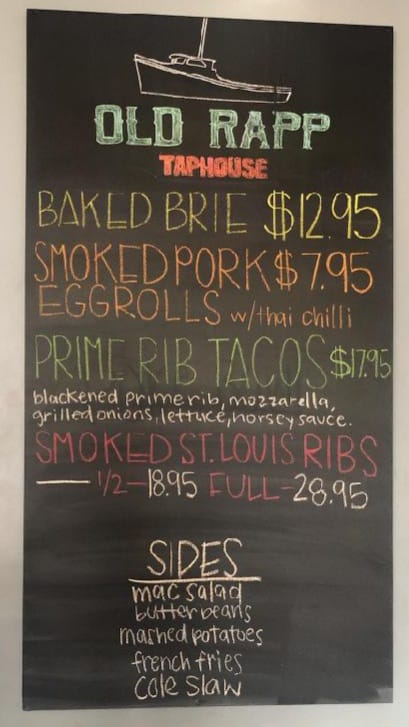 OLD RAPP
TAPHOUSE
BAKED BRIE $12.95
SMOKED PORK $7.95
EGGROLLS w/thai chilli
PRIME RIB TACOS $17.95
blackened prime rib, mozzarella,
grilled onions, lettuce, horsey sauce.
SMOKED ST. LOUIS RIBS
— 1/2—18.95 FULL—28.95
SIDES
mac salad
butter beans
mashed potatoes
french fries
Cole slaw